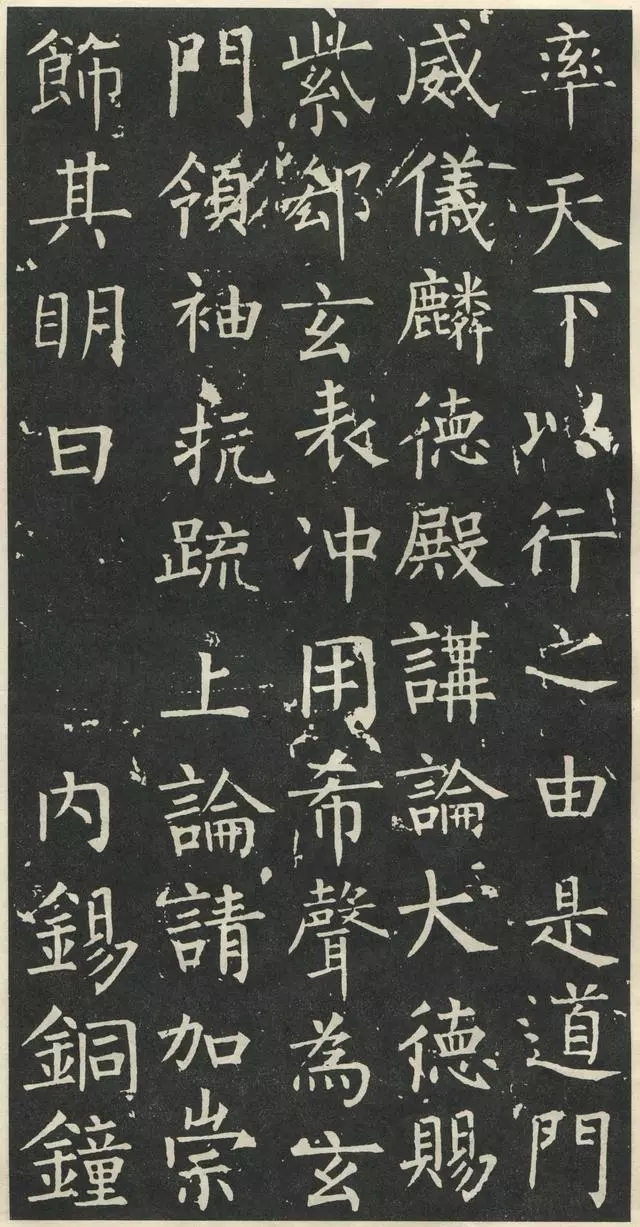 率天下以行之由是道門
威儀麟德殿講論大德賜
紫郄玄表冲用希聲為玄
門領袖抗疏上論請加崇
飾其明日内錫銅鐘